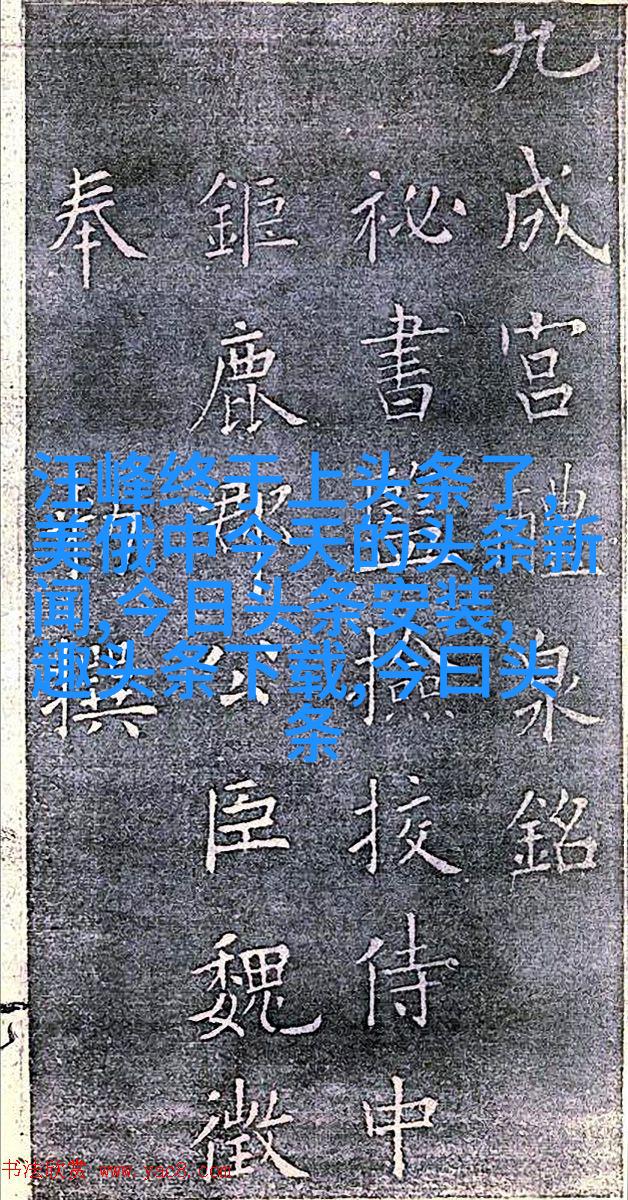 九成宮醴泉銘
祕書監撿挍侍中
鉅鹿郡公臣魏徵
奉 撰
汪峰终于上头条了,
美俄中今天的头条新
闻,今日头条安装,
趣头条下载,今日头
条
书法欣赏 www.yac8.com